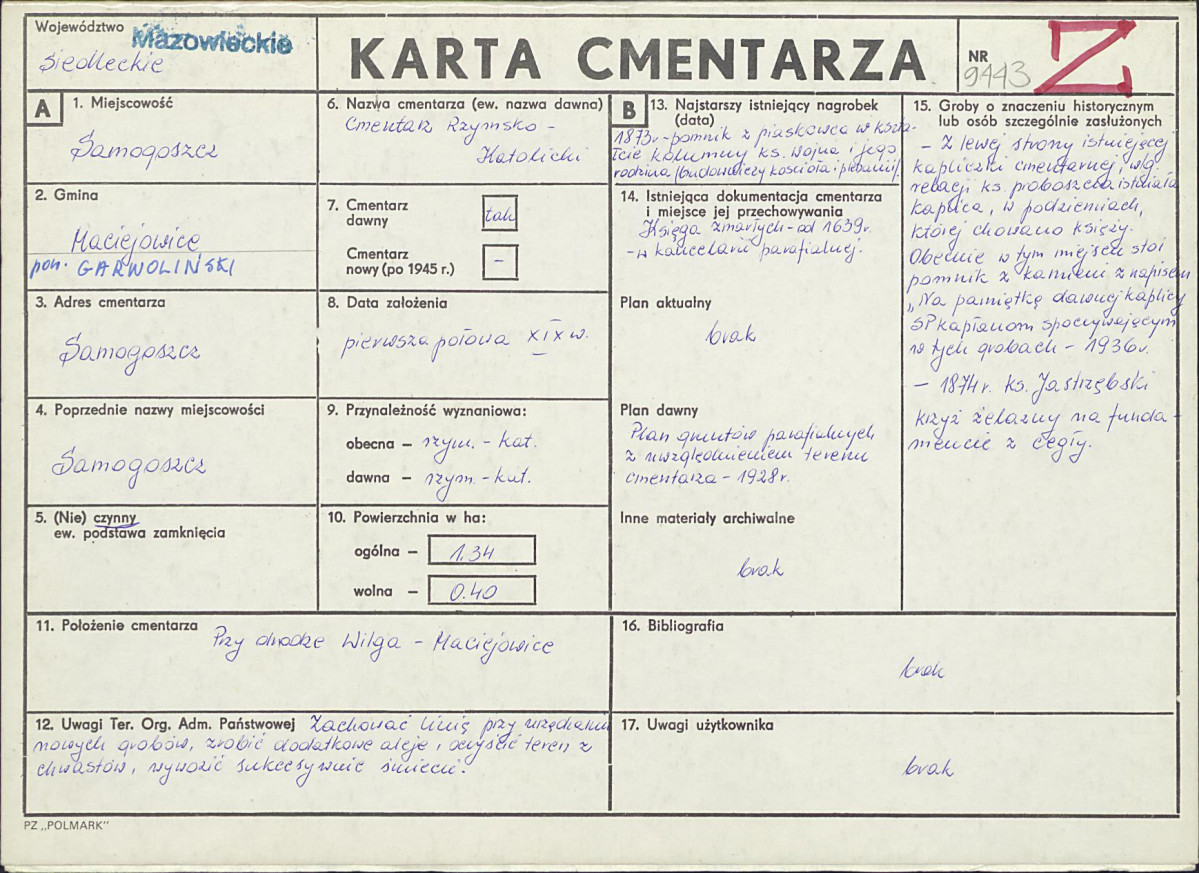 Województwo Mazowieckie
Siedleckie
KARTA CMENTARZA
NR
9443
Z
A
1. Miejscowość
Samogoszcz
2. Gmina
Maciejowice
pow. GARWOLIŃSKI
3. Adres cmentarza
Samogoszcz
4. Poprzednie nazwy miejscowości
Samogoszcz
5. (Nie) czynny
ew. podstawa zamknięcia
6. Nazwa cmentarza (ew. nazwa dawna)
Cmentarz Rzymsko -
Katolicki
7. Cmentarz
dawny
tak
Cmentarz
nowy (po 1945 r.)
-
8. Data założenia
pierwsza połowa XIX w.
9. Przynależność wyznaniowa:
obecna – rzym. - kat.
dawna – rzym. - kat.
10. Powierzchnia w ha:
ogólna – 1.34
wolna – 0.40
11. Położenie cmentarza
Przy drodze Wilga - Maciejowice
12. Uwagi Ter. Org. Adm. Państwowej Zachować linię przy urządzaniu
nowych grobów, zrobić dodatkowe aleje, oczyścić teren z
chwastów, wywozić sukcesywnie śmieci.
B
13. Najstarszy istniejący nagrobek
(data)
1873r - pomnik z piaskowca w kszta-
łcie kolumny ks. Wojna i jego
rodzina (budowniczy kościoła i plebanii).
14. Istniejąca dokumentacja cmentarza
i miejsce jej przechowywania
Księga zmarłych - od 1639r.
- w kancelarii parafialnej.
Plan aktualny
brak
Plan dawny
Plan gruntów parafialnych
z uwzględnieniem terenu
cmentarza - 1928r.
Inne materiały archiwalne
brak
15. Groby o znaczeniu historycznym
lub osób szczególnie zasłużonych
- Z lewej strony istniejącej
kapliczki cmentarnej, w/g
relacji ks. proboszcza istniała
kaplica, w podziemiach,
której chowano księży.
Obecnie w tym miejscu stoi
pomnik z kamieni z napisem
„Na pamiątkę dawnej kaplicy
SP kapłanom spoczywającym
w tych grobach - 1936r.
- 1874r. ks. Jastrzębski
krzyż żelazny na funda-
mencie z cegły.
16. Bibliografia
brak
17. Uwagi użytkownika
brak
PZ „POLMARK"